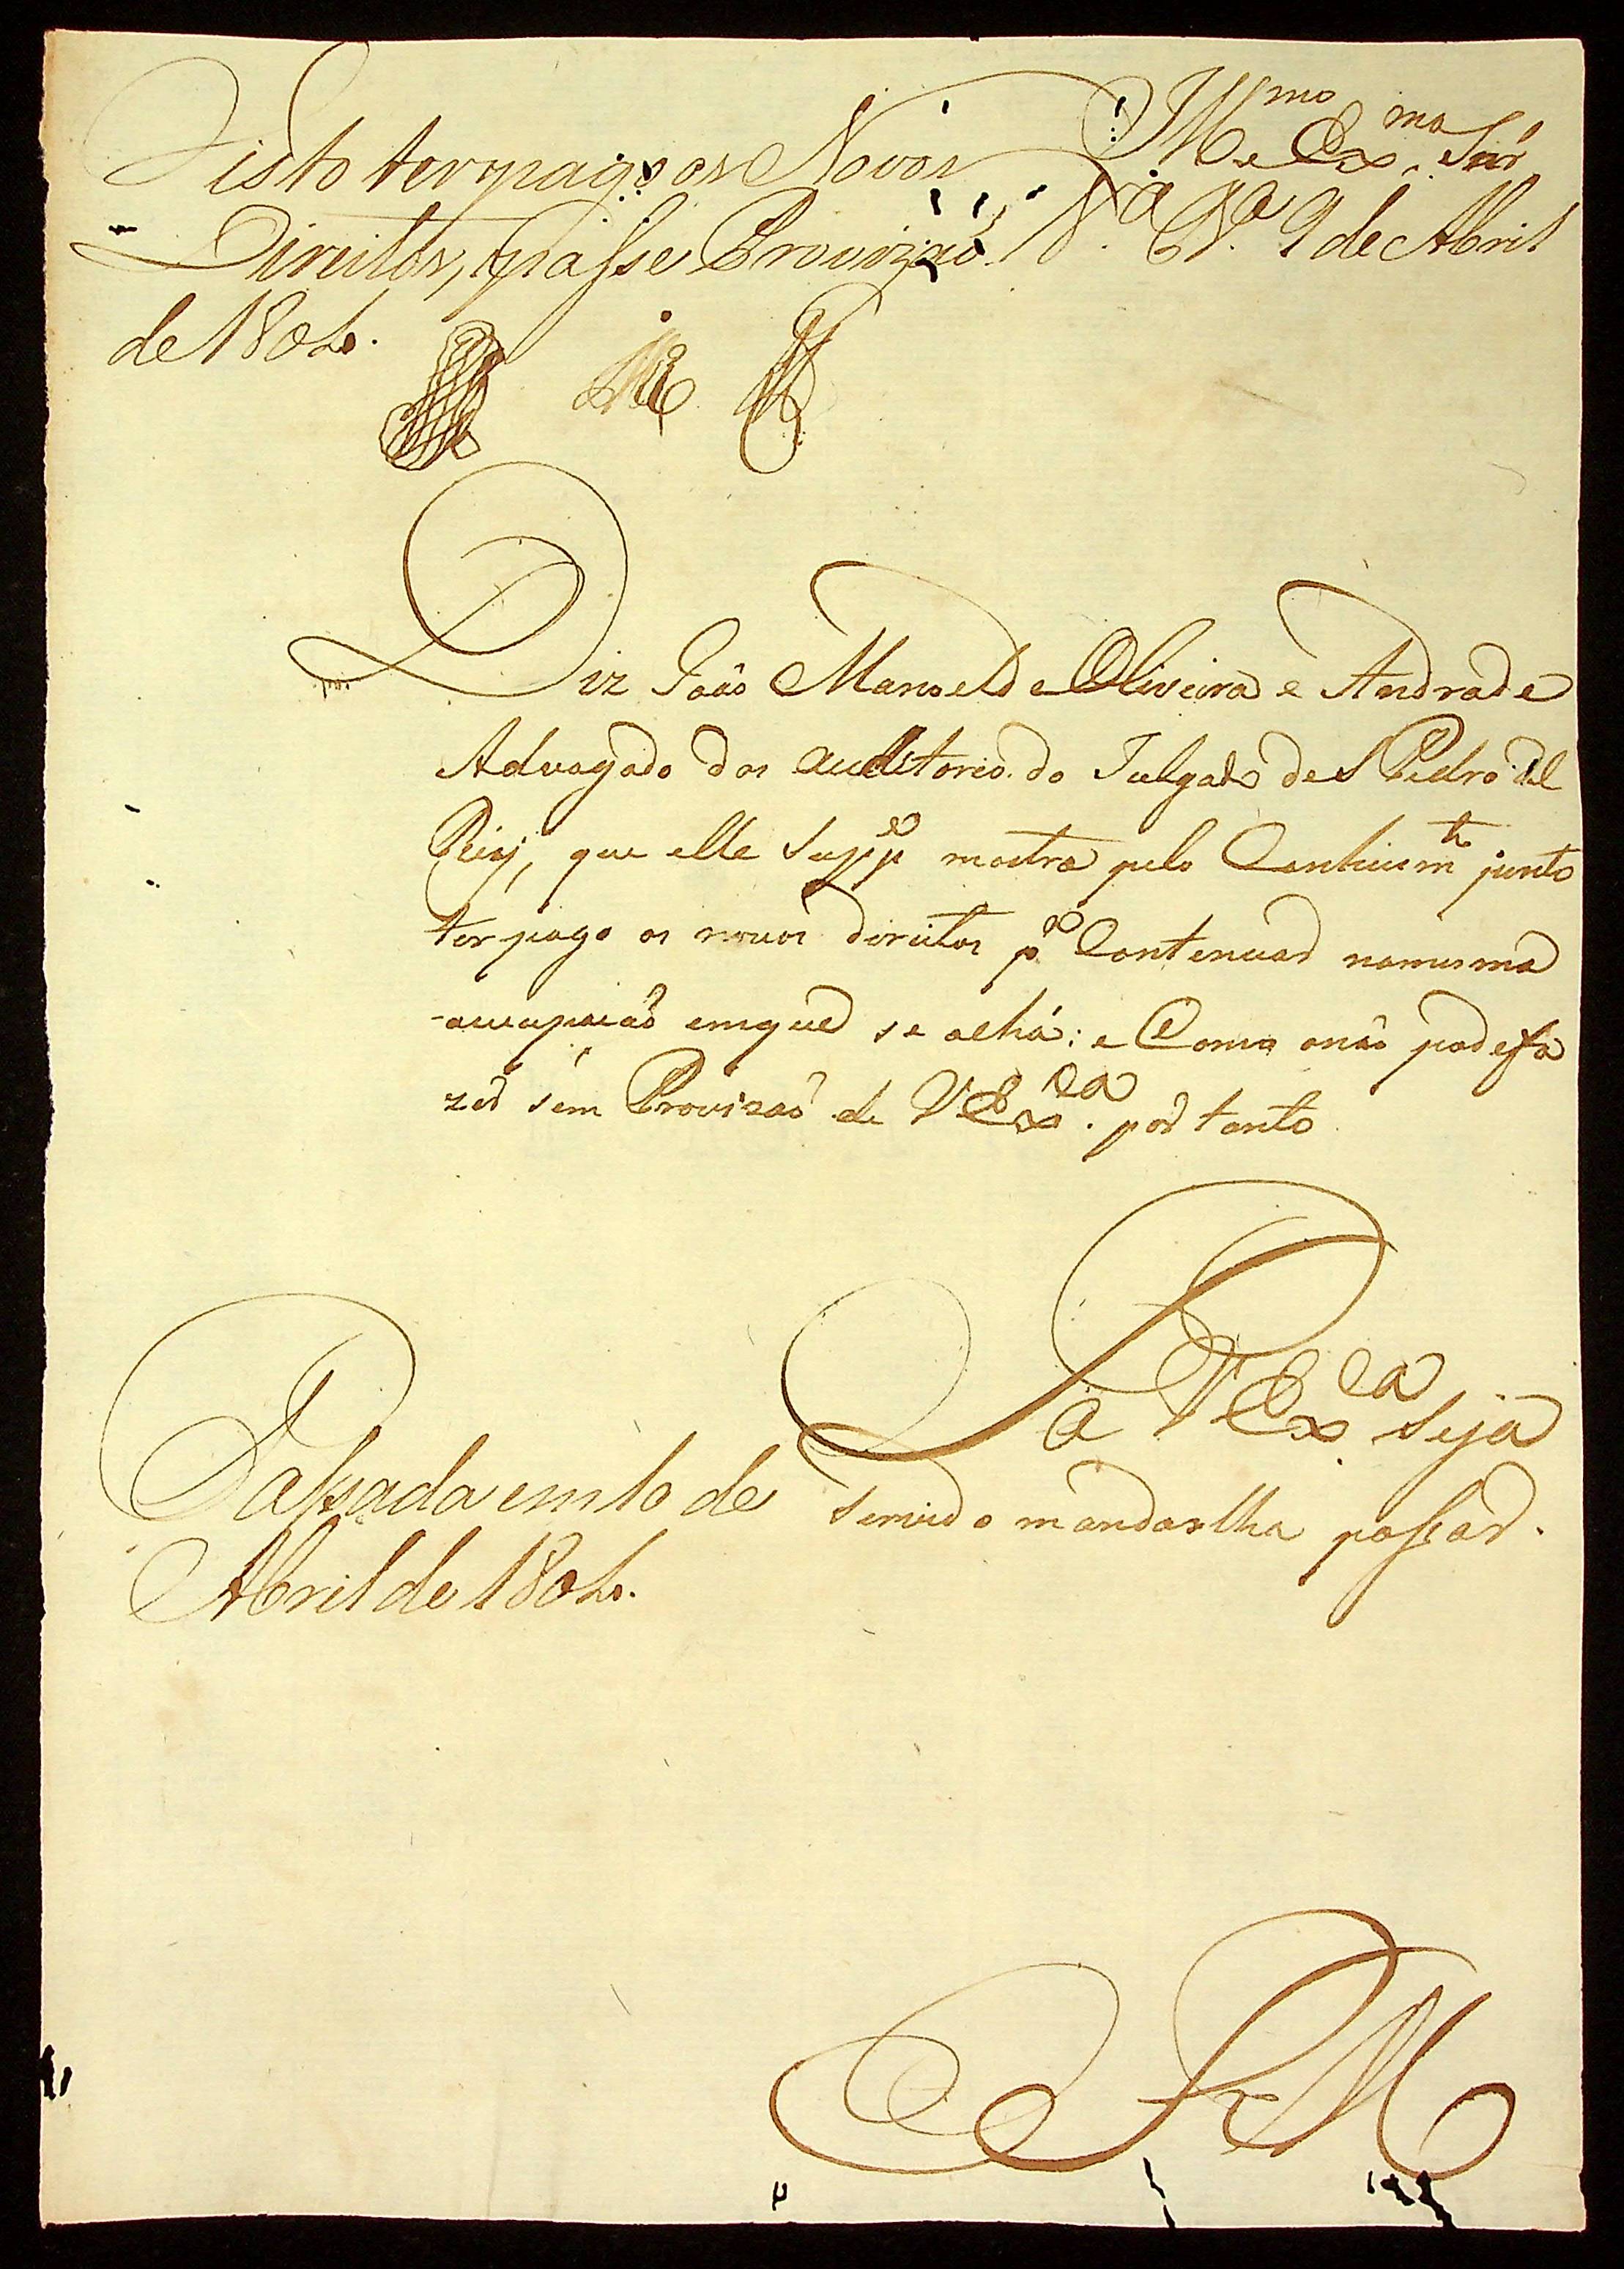 Illmo e Exmo Snr
Visto ter pago os Novos
Direitos, se passe Provizaõ. Va Va 9 de Abril
de 1804.
Diz Joaõ Manoel de Oliveira e Andrade
Advogado dos auditorios do Julgado de S Pedro del
Rey, que elle Suppe mostra pelo Conhecimto junto
ter pago os novos direitos pa Continuar na mesma
occupacaõ em que se achá: e Como o naõ pode fa
zer sem Provizaõ de V Exca. por tanto
P a V Exca Seja
Servido mandar lha passar.
Passada em 10 de
Abril de 1804.
E R M